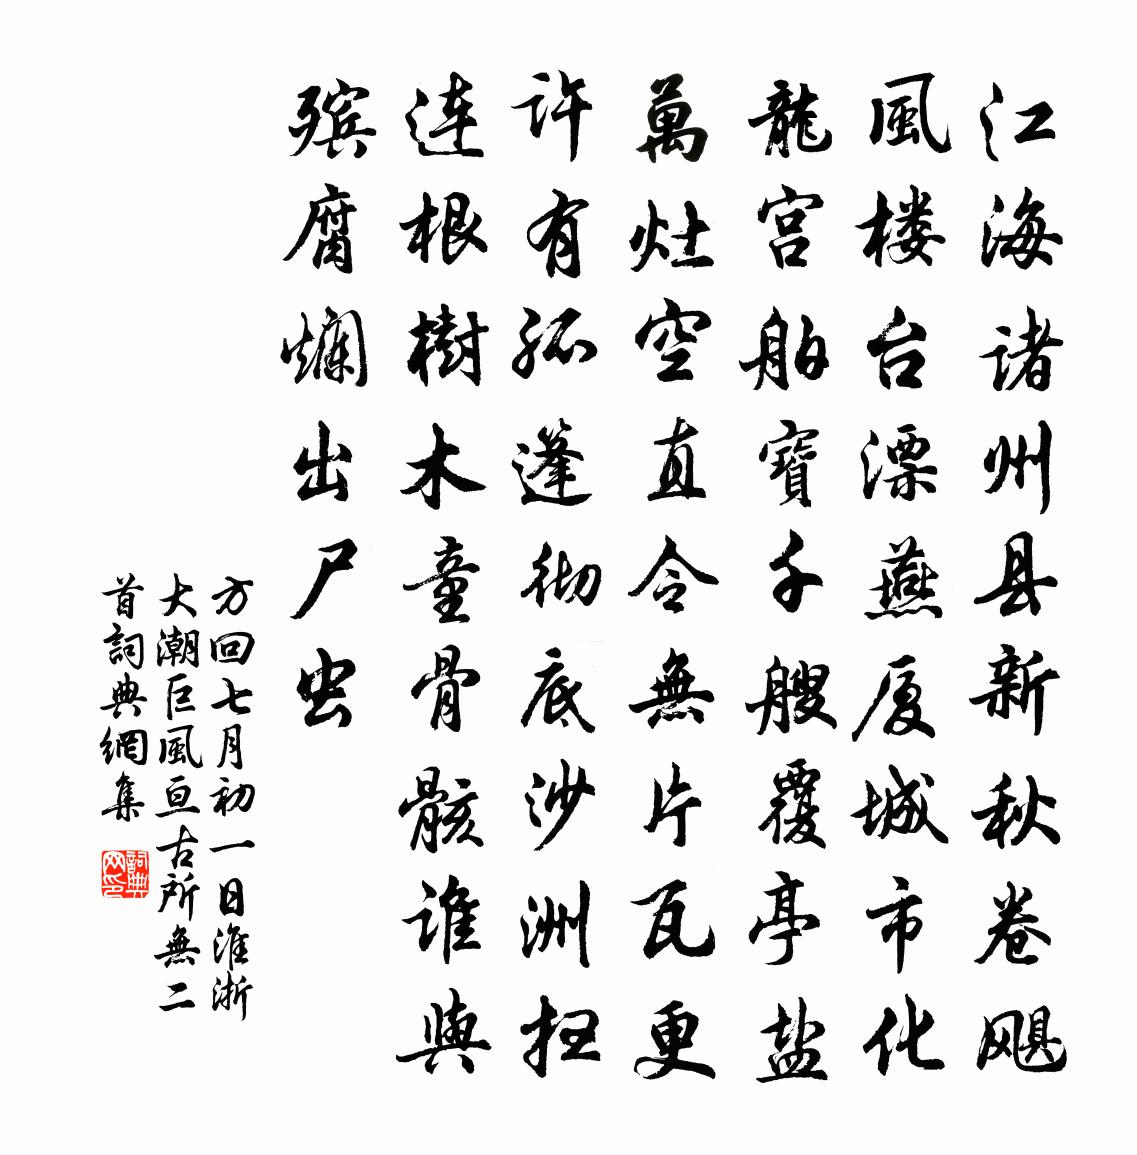 江海诸州县新秋卷飓
風楼台漂燕厦城市化
龍宫舶寶千艘覆亭盐
萬灶空直令無片瓦更
许有孤篷彻底沙洲扫
连根樹木童骨骸谁與
殡腐爛出尸虫
方回七月初一日淮浙
大潮巨風亘古所無二
首詞典網集
詞典网印